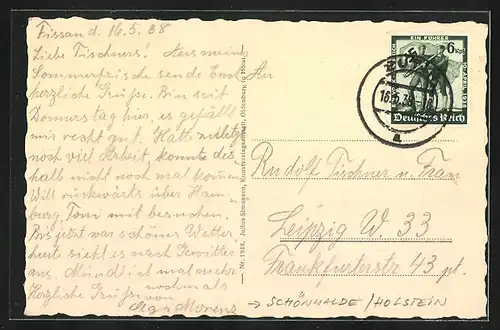 Fissau d. 16.5.38
Liebe Tischners! Aus meiner
Sommerfrische sende Euch
herzliche Grüsse. Bin seit
Donnerstag hier, es gefällt
mir recht gut. Hatte zuletzt
noch viel Arbeit, konnte des-
halb nicht noch mal kommen.
Will rückwärts über Ham-
berg, Toni mit besuchen.
Bis jetzt war schönes Wetter
heute sieht es nach Gewitter
aus. Mündlich mal mehr
nochmals
Herzliche Grüsse von
Olga Morenz
Nr. 1938. Julius Simonsen, Kunstverlagsanstalt, Oldenburg in Holst.
An
Rudolf Tischner u. Frau
Leipzig W. 33
Frankfurterstr 43 pt.
→ SCHÖNWALDE/HOLSTEIN
EIN FÜHRER
6
Deutsches Reich
16.5.38
a